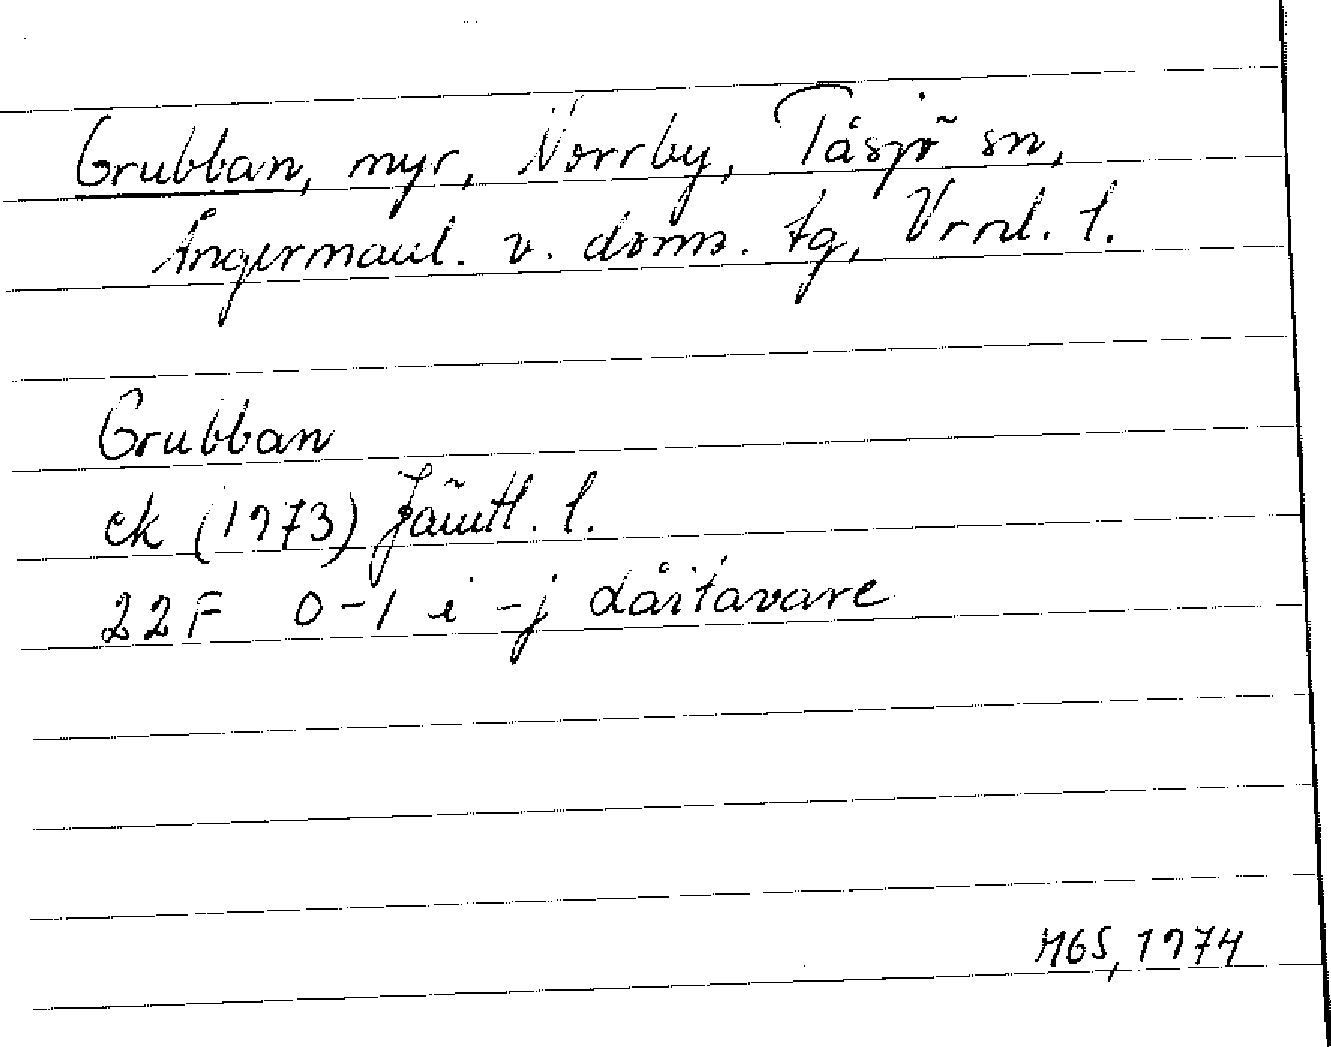 Grubban, myr, Norrby, Tåsjö sn,
Ångermanl. v. doms. tg, Vrnl. l.
Grubban
ek (1973) Jämtl. l.
22F 0-1 i-j Dåitavare
MGS, 1974